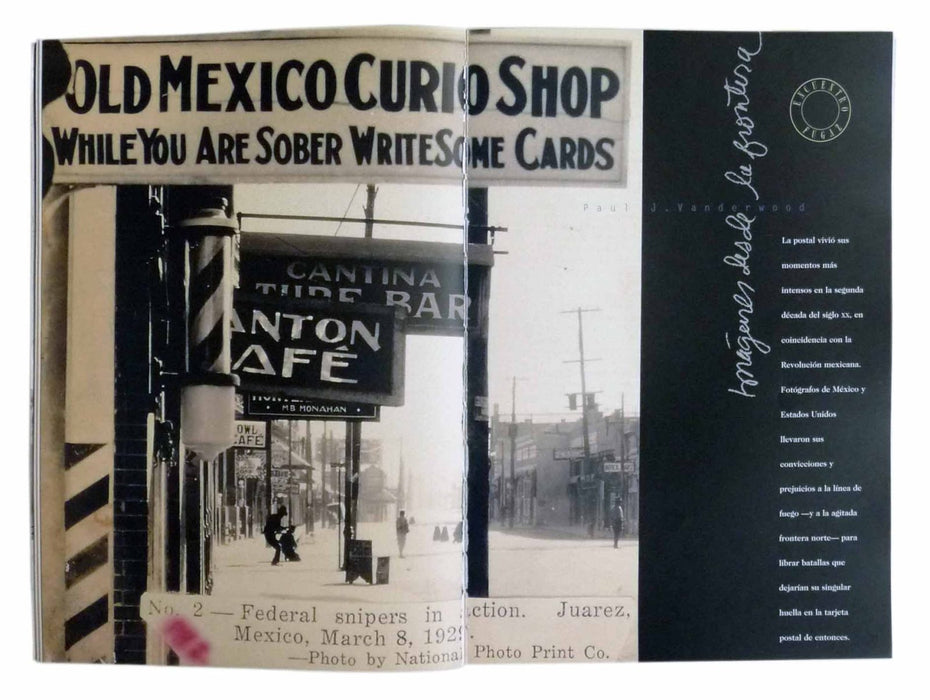 OLD MEXICO CURIO SHOP
WHILE YOU ARE SOBER WRITE SOME CARDS
CANTINA
BAR
ANTON
AFÉ
MB MONAHAN
OWL
CAFE
No. 2 — Federal snipers in action. Juarez,
Mexico, March 8, 1929.
—Photo by National Photo Print Co.
Imágenes desde la frontera
ENCUENTRO
FUGAZ
Paul J. Vanderwood
La postal vivió sus
momentos más
intensos en la segunda
década del siglo XX, en
coincidencia con la
Revolución mexicana.
Fotógrafos de México y
Estados Unidos
llevaron sus
convicciones y
prejuicios a la línea de
fuego —y a la agitada
frontera norte— para
librar batallas que
dejarían su singular
huella en la tarjeta
postal de entonces.